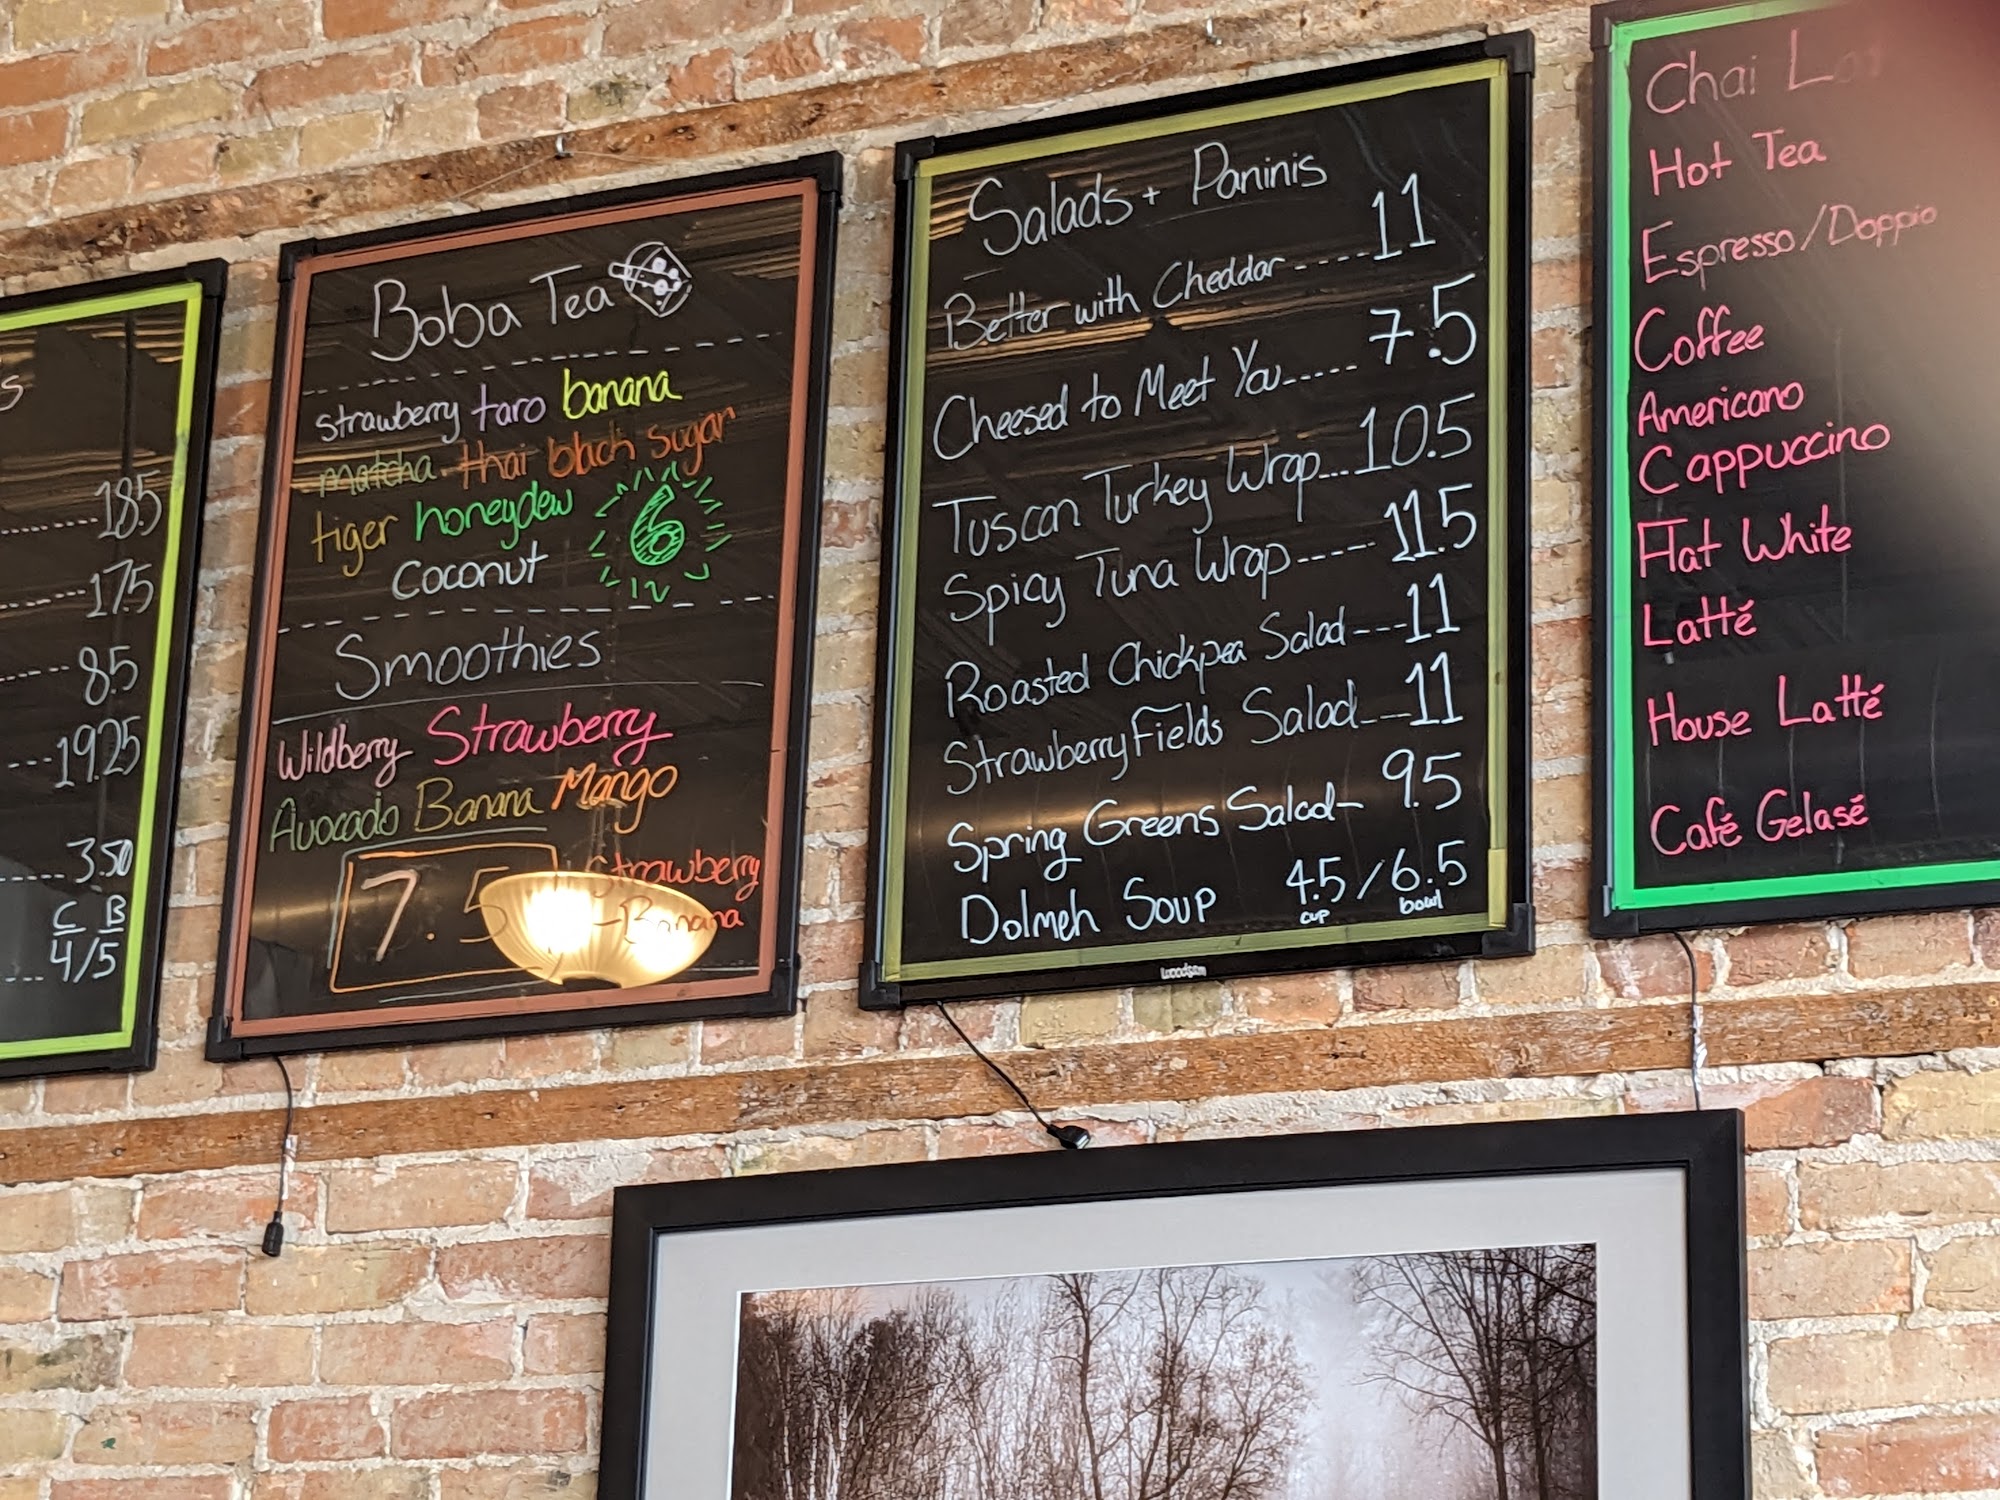 s
......185
......175
......8.5
...19.25
.....3.50
C B
....4/5
Boba Tea
strawberry taro banana
matcha thai blach sugar
tiger honeydew
6
coconut
Smoothies
Wildberry Strawberry
Avocado Banana Mango
7.5
Strawberry
-Banana
Salads + Paninis
Better with Cheddar ---- 11
Cheesed to Meet You ----- 7.5
Tuscan Turkey Wrap...10.5
Spicy Tuna Wrap ----- 11.5
Roasted Chickpea Salad ---11
Strawberry Fields Salad---11
Spring Greens Salad- 9.5
Dolmeh Soup 4.5/6.5
cup bowl
woodsam
Chai
Hot Tea
Espresso/Doppio
Coffee
Americano
Cappuccino
Flat White
Latté
House Latté
Café Gelasé